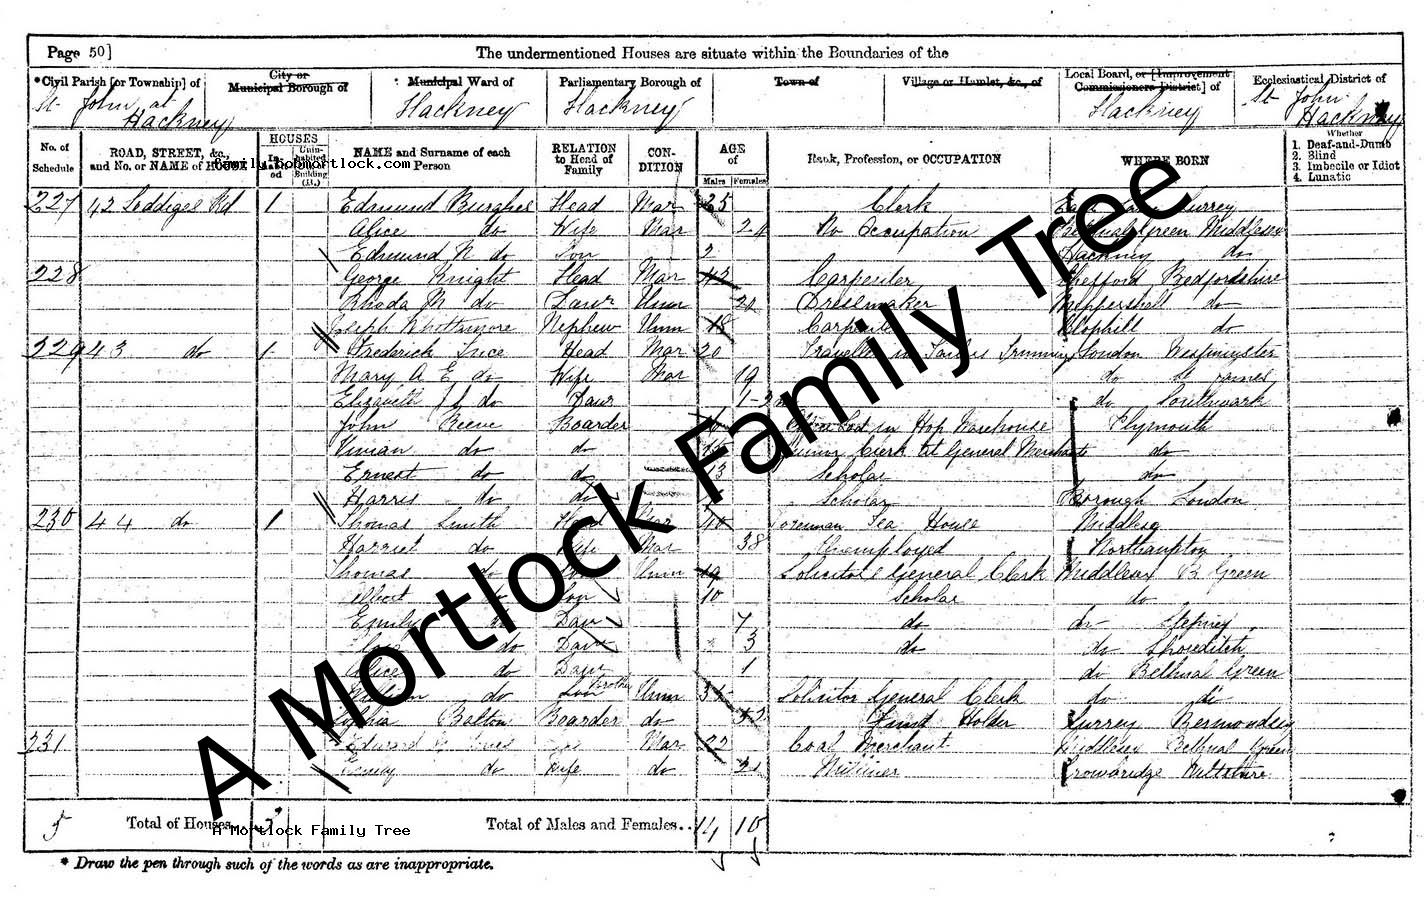 Page 50] The undermentioned Houses are situate within the Boundaries of the
*Civil Parish [or Township] of City or Municipal Borough of Municipal Ward of Parliamentary Borough of Town of Village or Hamlet, &c., of Local Board, or [Improvement Commissioners District] of Ecclesiastical District of
St John at Hackney Hackney Hackney Hackney St John Hackney
No. of Schedule ROAD, STREET, &c., and No. or NAME of HOUSE HOUSES In- ed Unin- habited Building (B.) NAME and Surname of each Person RELATION to Head of Family CON- DITION AGE of Males Females Rank, Profession, or OCCUPATION WHERE BORN Whether 1. Deaf-and-Dumb 2. Blind 3. Imbecile or Idiot 4. Lunatic
family.bobmortlock.com
227 42 Loddiges Rd 1 Edmund Head Mar 25 Clerk Surrey
Alice do Wife Mar 24 No Occupation Bethnal Green Middlesex
Edmund N do Son 2 Hackney do
228 George Knight Head Mar 43 Carpenter Shefford Bedfordshire
Rhoda M do Daur Unm 20 Dressmaker Meppershall do
Joseph Nephew Unm 18 Carpenter Clophill do
229 43 do 1 Frederick Head Mar 20 Traveller in Trimming London Westminster
Mary A E do Wife Mar 19 do St James
Elizabeth do Daur do Southwark
John Reeve Boarder in Hop Warehouse Plymouth
Vivian do do 15 Junior Clerk at General Merchants do
Ernest do do 13 Scholar do
Harris do do Scholar Borough London
230 44 do 1 Thomas Smith Head Mar 40 Foreman Tea House Middlesex
Harriet do Wife Mar 38 Unemployed Northampton
Thomas do Son Unm 19 Solicitors General Clerk Middlesex B Green
Albert do Son 10 Scholar do
Emily do Daur 7 do do Stepney
do Daur 3 do do Shoreditch
Alice do Daur 1 do Bethnal Green
William do Brother Unm 35 Solicitor General Clerk do do
Sophia Bolton Boarder do Holder Surrey Bermondsey
231 Edward Mar 22 Coal Merchant Middlesex Bethnal Green
do Wife do 21 Milliner Trowbridge Wiltshire
A Mortlock Family Tree
5 Total of Houses.. 3 Total of Males and Females.. 14 10
A Mortlock Family Tree
* Draw the pen through such of the words as are inappropriate.